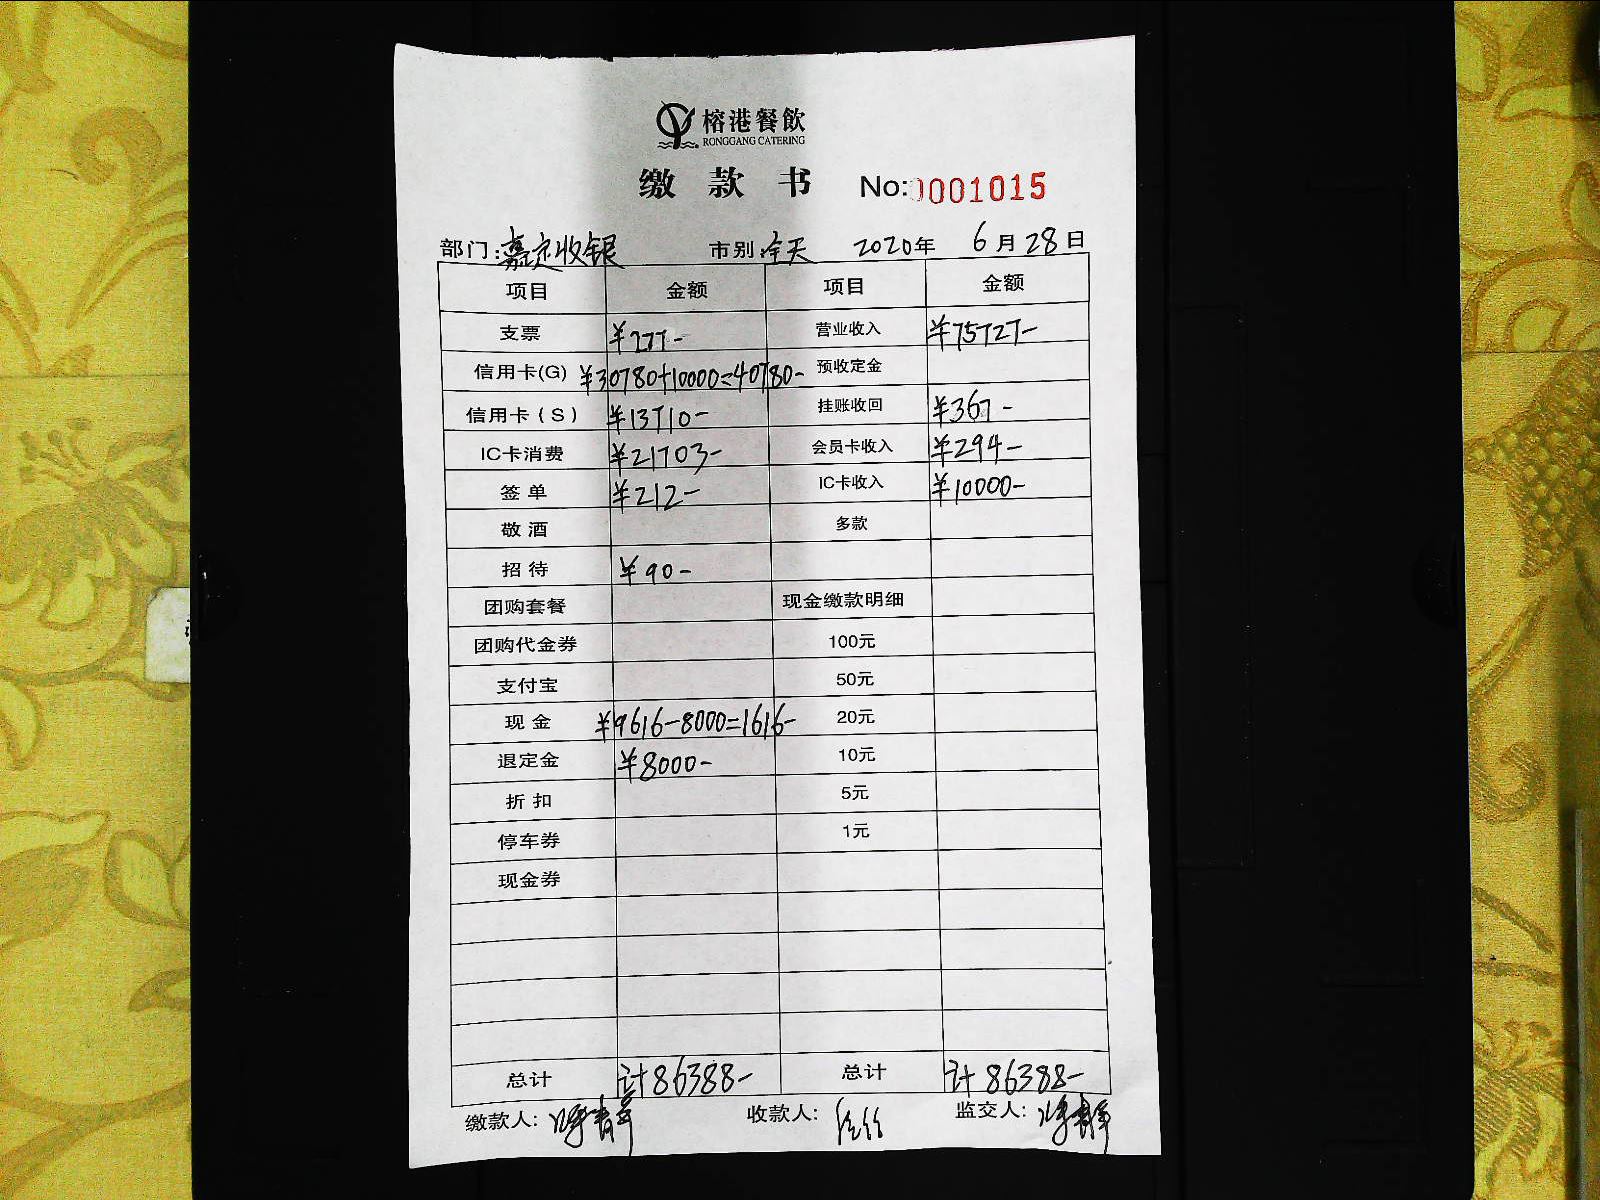 榕港餐飲
RONGGANG CATERING
缴款书 No:0001015
部门:嘉定收银 市别:全天 2020年 6月28日
项目 金额 项目 金额
支票 ¥277- 营业收入 ¥75727-
信用卡(G) ¥30780+10000=40780- 预收定金
信用卡(S) ¥13710- 挂账收回 ¥367-
IC卡消费 ¥21703- 会员卡收入 ¥294-
签单 ¥212- IC卡收入 ¥10000-
敬酒 多款
招待 ¥90-
团购套餐 现金缴款明细
团购代金券 100元
支付宝 50元
现金 ¥9616-8000=1616- 20元
退定金 ¥8000- 10元
折扣 5元
停车券 1元
现金券
总计 计86388- 总计 计86388-
缴款人: 收款人: 监交人: